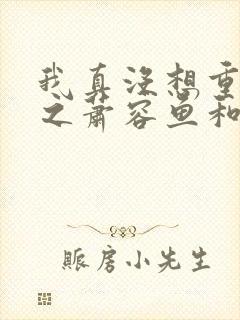 我真没想重
之萧容鱼和
赈房小先生